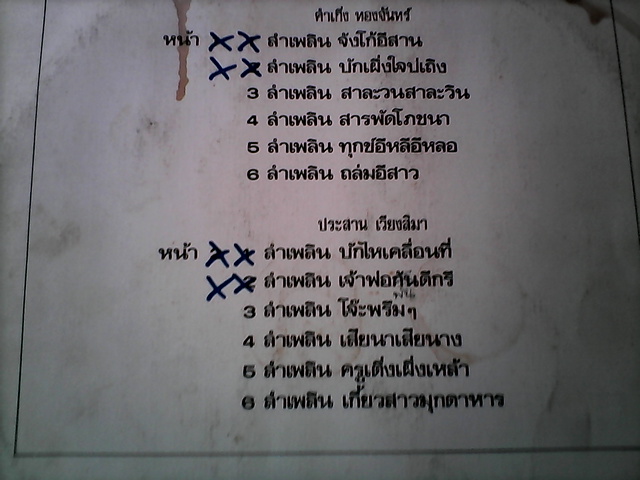 คำเกิ่ง ทองจันทร์
หน้า ลำเพลิน จังโก้อีสาน
ลำเพลิน บักเผิ่งใจปเถิง
3 ลำเพลิน สาละวนสาละวิน
4 ลำเพลิน สารพัดโภชนา
5 ลำเพลิน ทุกข์อีหลีอีหลอ
6 ลำเพลิน ถล่มอีสาว
ประสาน เวียงสิมา
หน้า ลำเพลิน บักไหเคลื่อนที่
ลำเพลิน เจ้าฟอกันดีกรี
3 ลำเพลิน โจ๊ะพรึมๆ
4 ลำเพลิน เสียนาเสียนาง
5 ลำเพลิน ครูเดิ่งเผิ่งเหล้า
6 ลำเพลิน เกี้ยวสาวมุกดาหาร